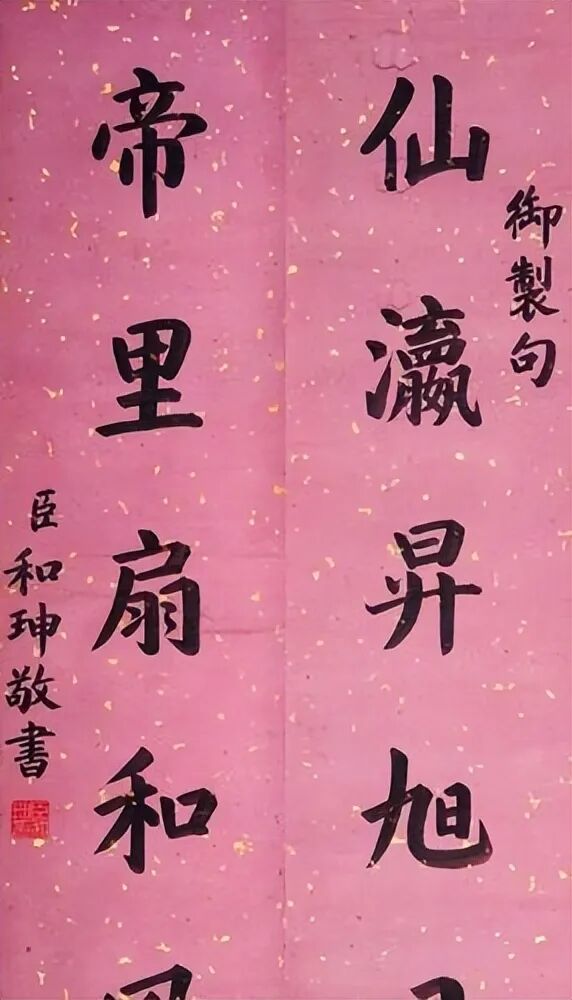 御製句
仙瀛昇旭
帝里扇和
臣和珅敬書